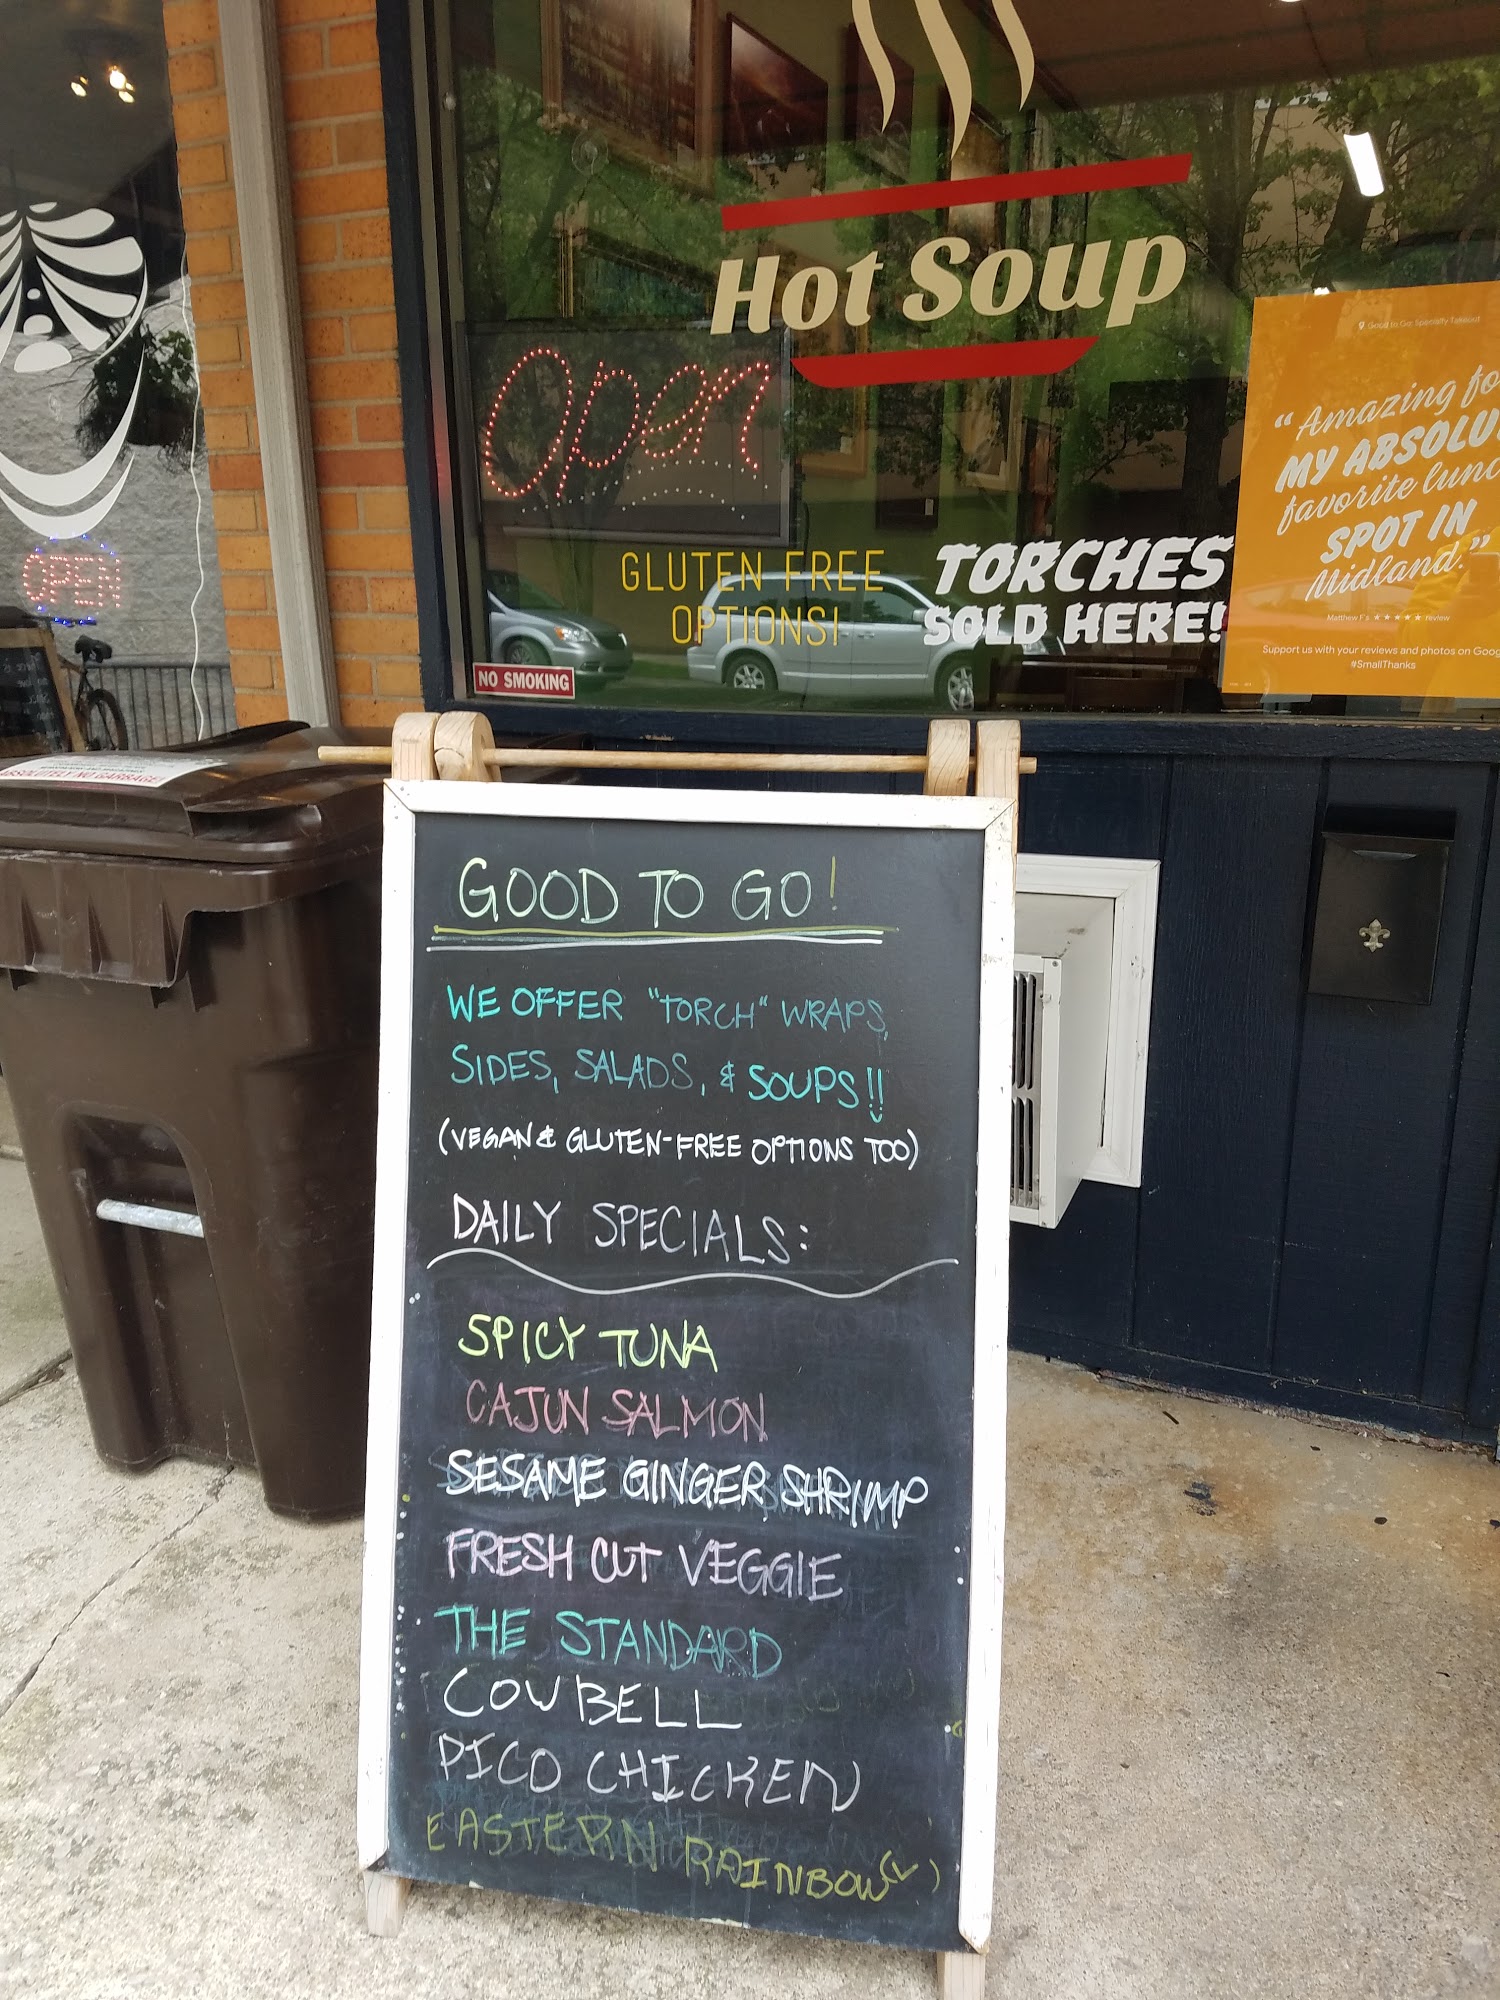 Hot Soup
Open
GLUTEN FREE
OPTIONS!
TORCHES
SOLD HERE!
NO SMOKING
OPEN
Good to Go Specialty Takeout
"Amazing
MY
favorite
SPOT IN
Midland."
Matthew F's ★★★★★ review
Support us with your reviews and photos on
#SmallThanks
ABSOLUTELY NO GARBAGE!
GOOD TO GO!
WE OFFER "TORCH" WRAPS,
SIDES, SALADS, & SOUPS!!
(VEGAN & GLUTEN-FREE OPTIONS TOO)
DAILY SPECIALS:
SPICY TUNA
CAJUN SALMON
SESAME GINGER SHRIMP
FRESH CUT VEGGIE
THE STANDARD
COWBELL
PICO CHICKEN
EASTERN RAINBOW (V)